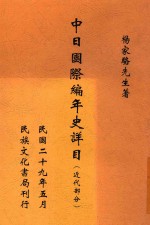 楊家駱先生著
中日國際編年史詳目(近代部分)
民國二十九年五月
民族文化書局刊行